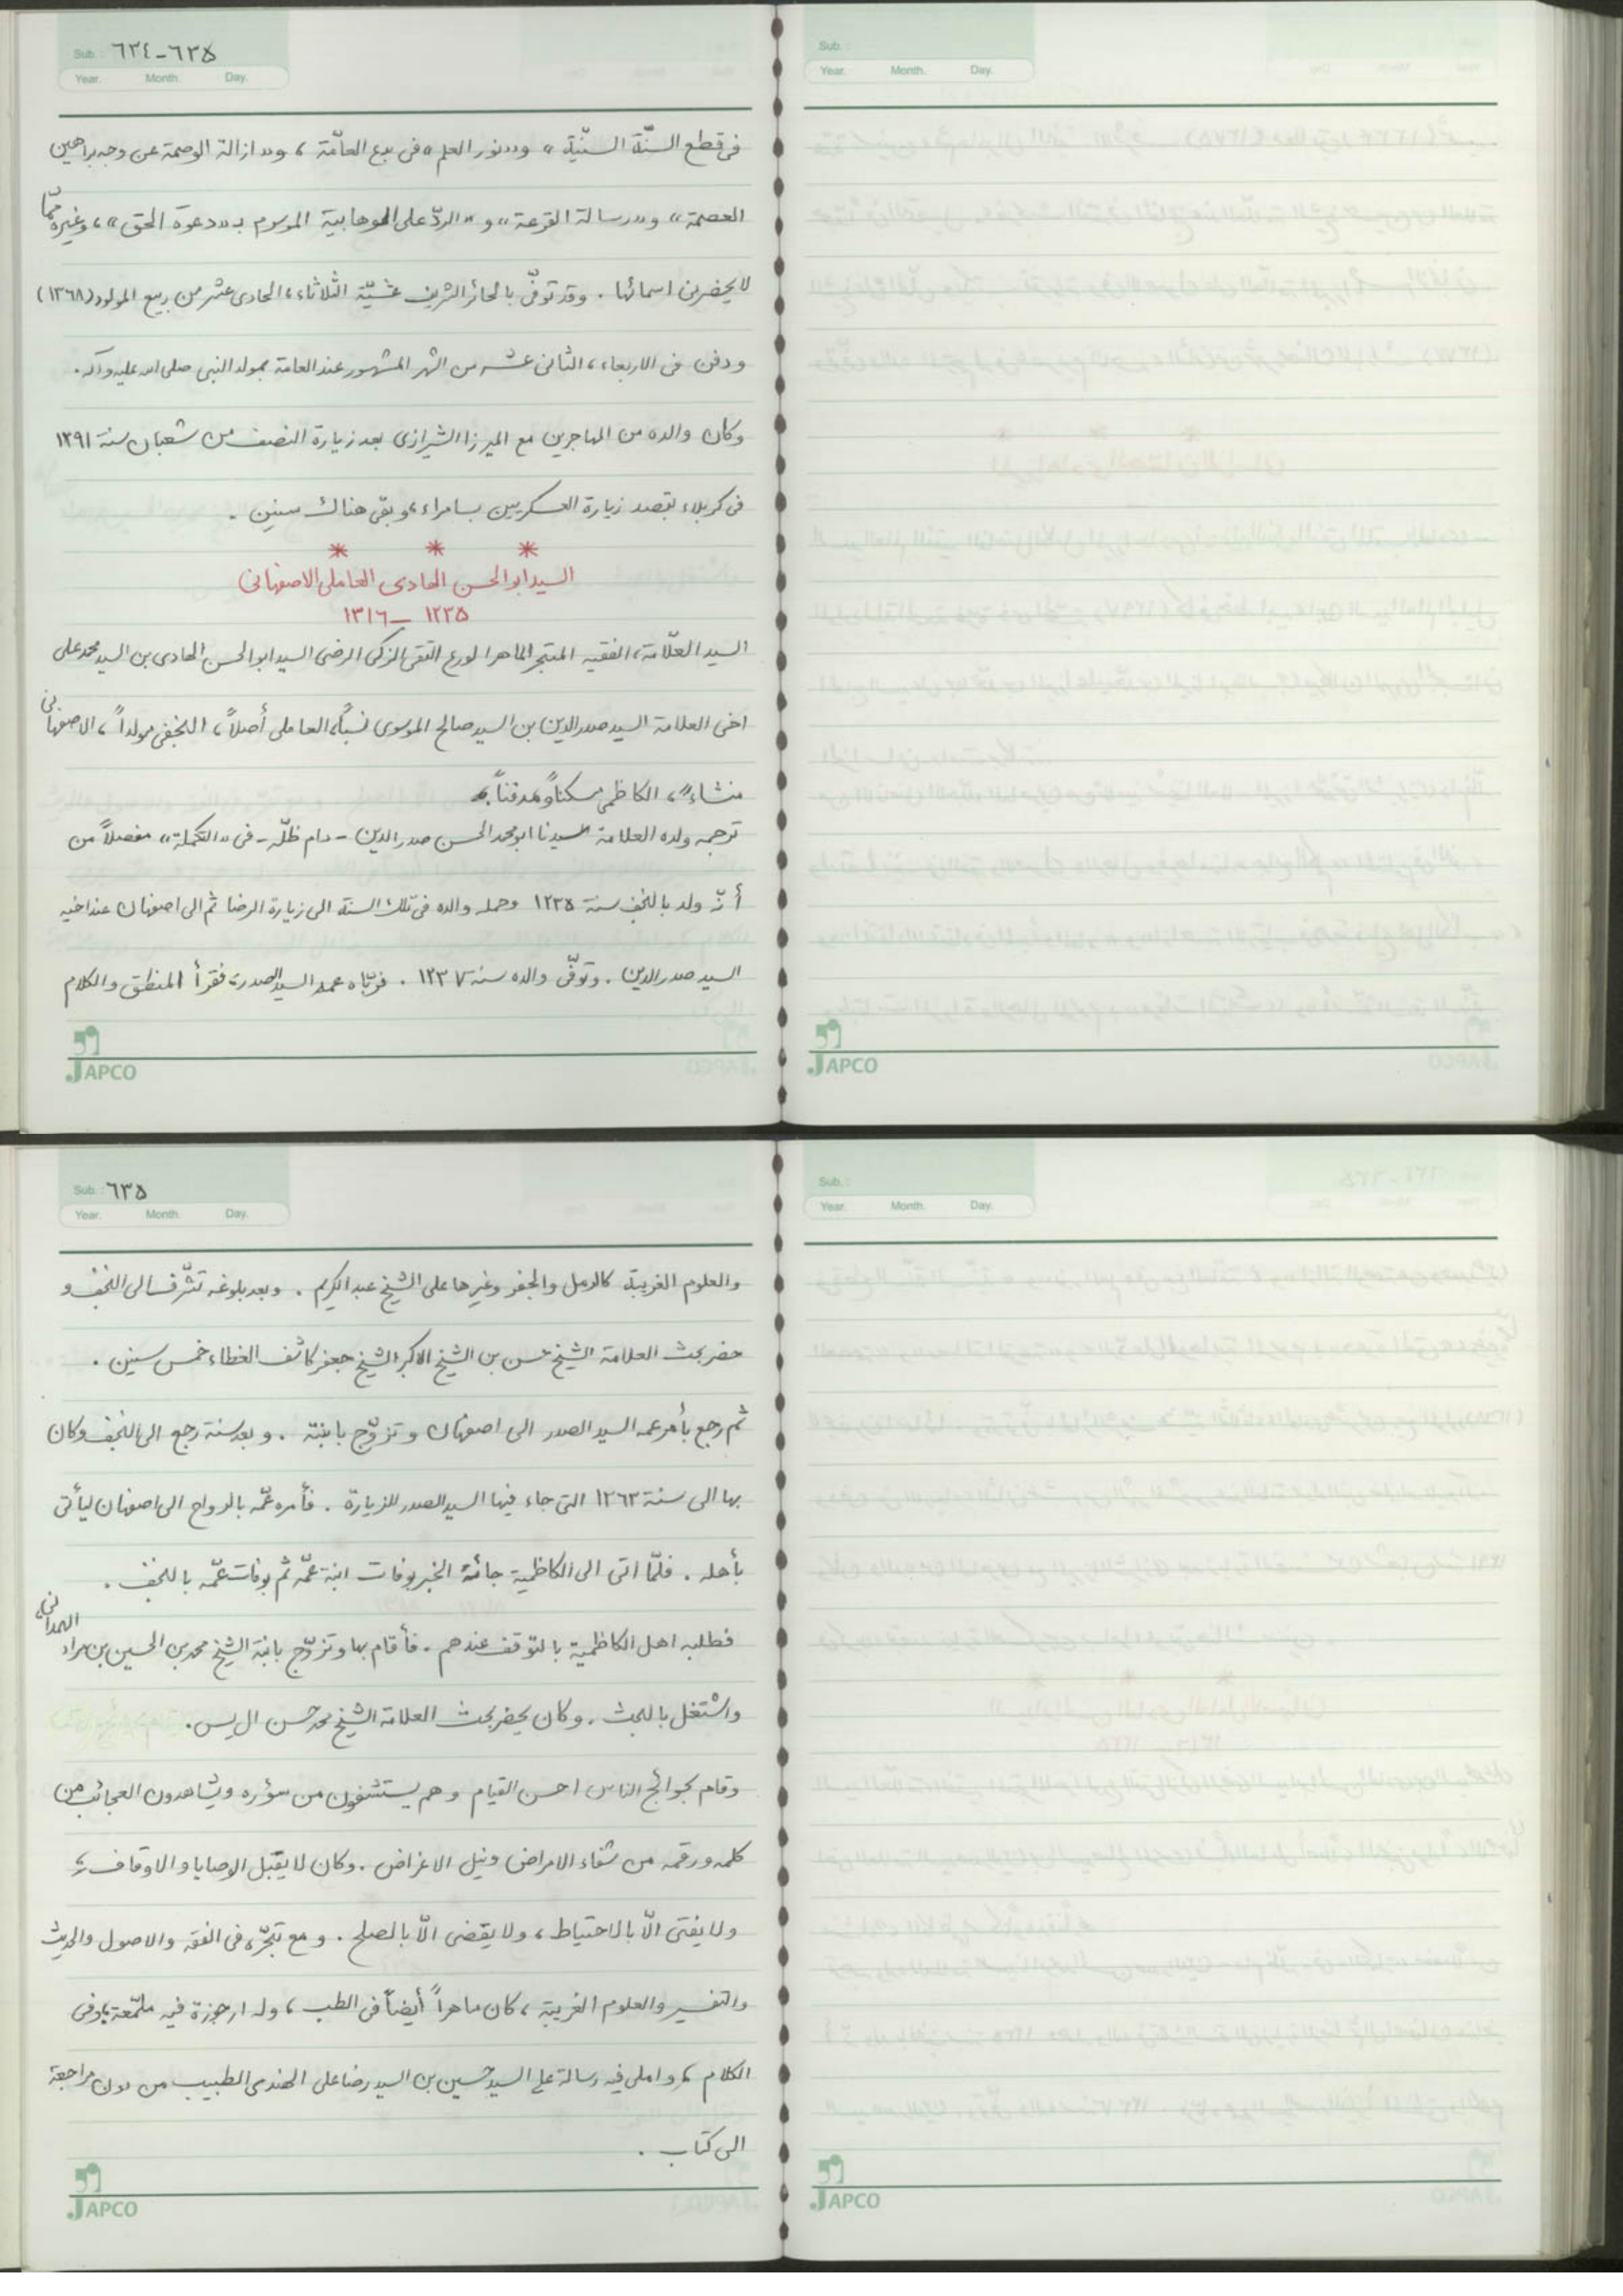 Sub.: ٦٣٤-٦٣۵
Year. Month. Day.
فى قطع السنّة السنيّة» و«نور العلم» فى بدع العامّة، و«ازالة الوصمة عن وجه براهين
العصمة» و«رسالة القرعة» و«الردّ على الوهابية الموسوم بـ«دعوة الحق»، وغيره ممّا
لا يحضرنى اسمائها. وقد توفّى بالحائر الشريف عشيّة الثلاثاء، الحادى عشر من ربيع المولود (١٣٦٨)
ودفن فى الاربعاء، الثانى عشر من الشهر المشهور عند العامة بمولد النبى صلى الله عليه وآله.
وكان والده من المهاجرين مع الميرزا الشيرازى بعد زيارة النصف من شعبان سنة ١٢٩١
فى كربلاء بقصد زيارة العسكريين بسامراء، وبقى هناك سنين.
* * *
السيد ابو الحسن الهادى العاملى الاصفهانى
١٢٣۵ – ١٣١٦
السيد العلّامة، الفقيه المتبحر الماهر الورع التقى الزكى الرضى السيد ابو الحسن الهادى بن السيد محمد على
اخى العلامة السيد صدر الدين بن السيد صالح الموسوى نسباً، العاملى أصلاً، النجفى مولداً، الاصفهانى
منشاءً، الكاظمى مسكناً ومدفناً.
ترجمه ولده العلامة سيدنا ابو محمد الحسن صدر الدين - دام ظلّه - فى «التكملة» مفصلاً من
أنّه ولد بالنجف سنة ١٢٣۵ وحمله والده فى تلك السنة الى زيارة الرضا ثم الى اصفهان عند اخيه
السيد صدر الدين. وتوفّى والده سنة ١٢٣٧. فربّاه عمه السيد الصدر، فقرأ المنطق والكلام
JAPCO
Sub.:
Year. Month. Day.
JAPCO
Sub.: ٦٣۵
Year. Month. Day.
والعلوم الغريبة كالرمل والجفر وغيرها على الشيخ عبد الكريم. وبعد بلوغه تشّرف الى النجف و
حضر بحث العلامة الشيخ حسن بن الشيخ الاكبر الشيخ جعفر كاشف الغطاء خمس سنين.
ثم رجع بأمر عمه السيد الصدر الى اصفهان وتزوّج بابنته. و بعد سنة رجع الى النجف وكان
بها الى سنة ١٢٦٣ التى جاء فيها السيد الصدر للزيارة. فأمره عمّه بالرواح الى اصفهان ليأتى
بأهله. فلمّا اتى الى الكاظمية جائه الخبر بوفات ابنة عمّه ثم بوفات عمّه بالنجف.
فطلبه اهل الكاظمية بالتوقف عندهم. فأقام بها وتزوّج بابنة الشيخ محمد بن الحسين بن مراد الهمدانى،
واشتغل بالبحث. وكان يحضر بحث العلامة الشيخ محمد حسن ال يس.
وقام بحوائج الناس احسن القيام وهم يستشفون من سؤره ويشاهدون العجائب من
كلمه ورقمه من شفاء الامراض ونيل الاغراض. وكان لا يقبل الوصايا والاوقاف،
ولا يفتى الّا بالاحتياط، ولا يقضى الّا بالصلح. و مع تبحّره فى الفقه والاصول والحديث
والتفسير والعلوم الغريبة، كان ماهراً أيضاً فى الطب، وله ارجوزة فيه ملمّعة بأوفى
الكلام، واملى فيه رسالة على السيد حسين بن السيد رضا على الهندى الطبيب من دون مراجعة
الى كتاب.
JAPCO
Sub.:
Year. Month. Day.
JAPCO